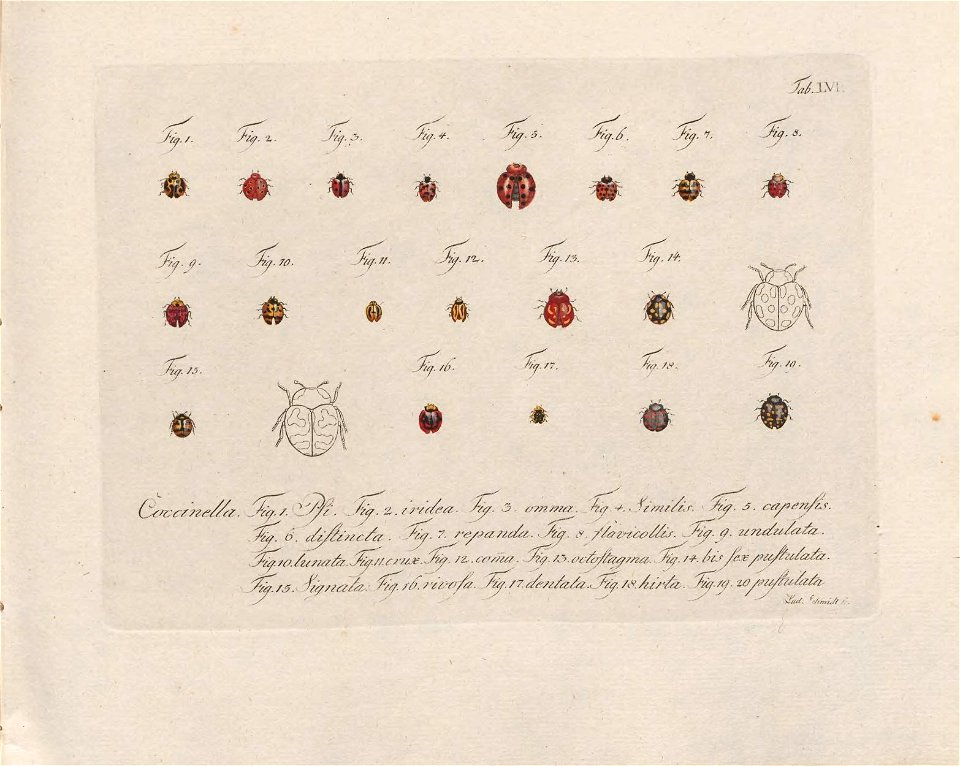 Tab. LVI.
Fig. 1. Fig. 2. Fig. 3. Fig. 4. Fig. 5. Fig. 6. Fig. 7. Fig. 8.
Fig. 9. Fig. 10. Fig. 11. Fig. 12. Fig. 13. Fig. 14.
Fig. 15. Fig. 16. Fig. 17. Fig. 18. Fig. 19.
Coccinella. Fig. 1. Psi. Fig. 2. iridea. Fig. 3. omma. Fig. 4. Similis. Fig. 5. capenſis.
Fig. 6. diſtincta. Fig. 7. repanda. Fig. 8. flavicollis. Fig. 9. undulata.
Fig. 10. lunata. Fig. 11. crux. Fig. 12. coma. Fig. 13. octoſtagma. Fig. 14. bis ſex puſtulata.
Fig. 15. Signata. Fig. 16. rivoſa. Fig. 17. dentata. Fig. 18. hirta. Fig. 19. 20 puſtulata
Lud. Schmidt